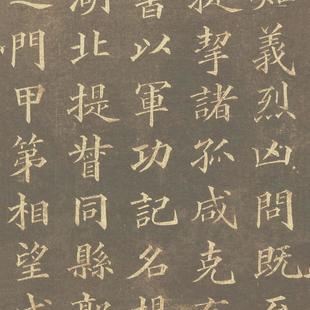 義烈凶問既至
提挈諸孤咸克有
皆以軍功記名提
湖北提督同縣郭
門甲第相望